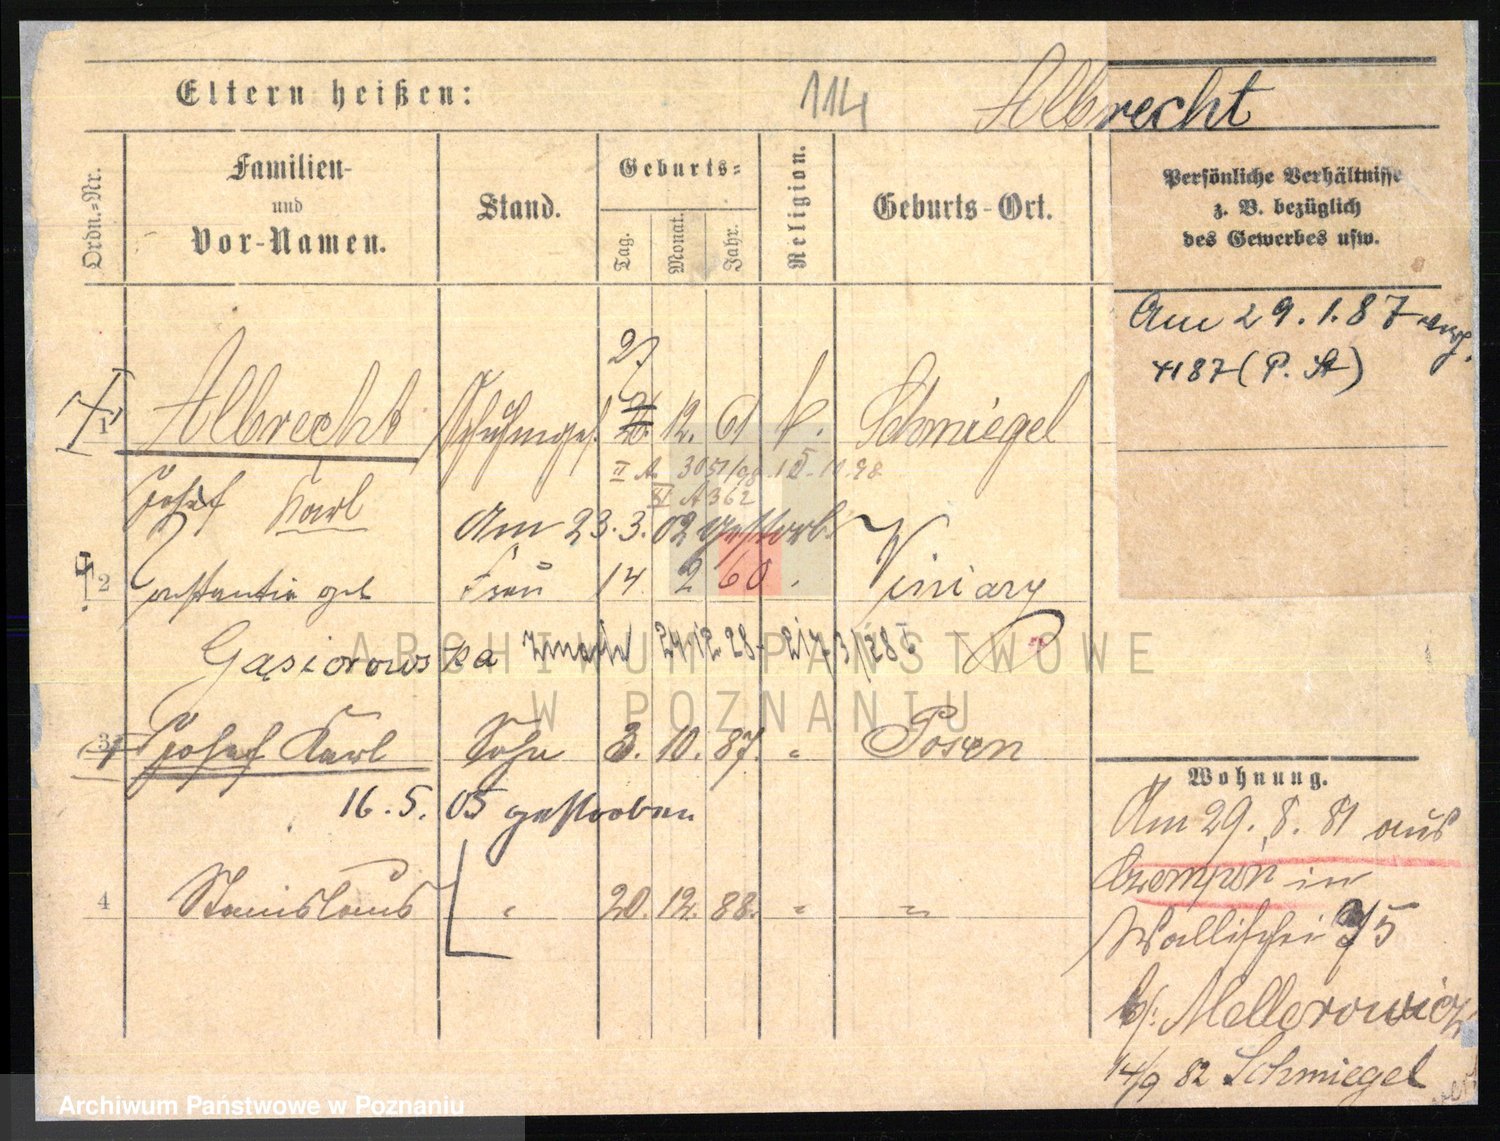 Eltern heißen:
114
Albrecht
Ordn.-Nr.
Familien-
und
Vor-Namen.
Stand.
Geburts-
Tag.
Monat.
Jahr.
Religion.
Geburts-Ort.
Persönliche Verhältnisse
z. B. bezüglich
des Gewerbes usw.
Am 29.1.87
4187 (P. St)
27
1 Albrecht Schuhmges. 26. 12. 61 k. Schmiegel
II A. 3051/98 15.11.98
XI A 362
Josef Karl
Am 23.3.02 gestorb
2 Constantia geb Frau 14 2 60 Viniary
Gąsiorowska zmarła 24.12 28
3 Josef Karl Sohn 3. 10. 87. " Posen
16.5.05 gestorben
4 Stanislaus " 20. 12. 88. " "
Wohnung.
Am 29. 8. 81 aus
Czempin in
Wallischei 75
b/. Mellerowicz
14/9 82 Schmiegel
ARCHIWUM PAŃSTWOWE
W POZNANIU
Archiwum Państwowe w Poznaniu